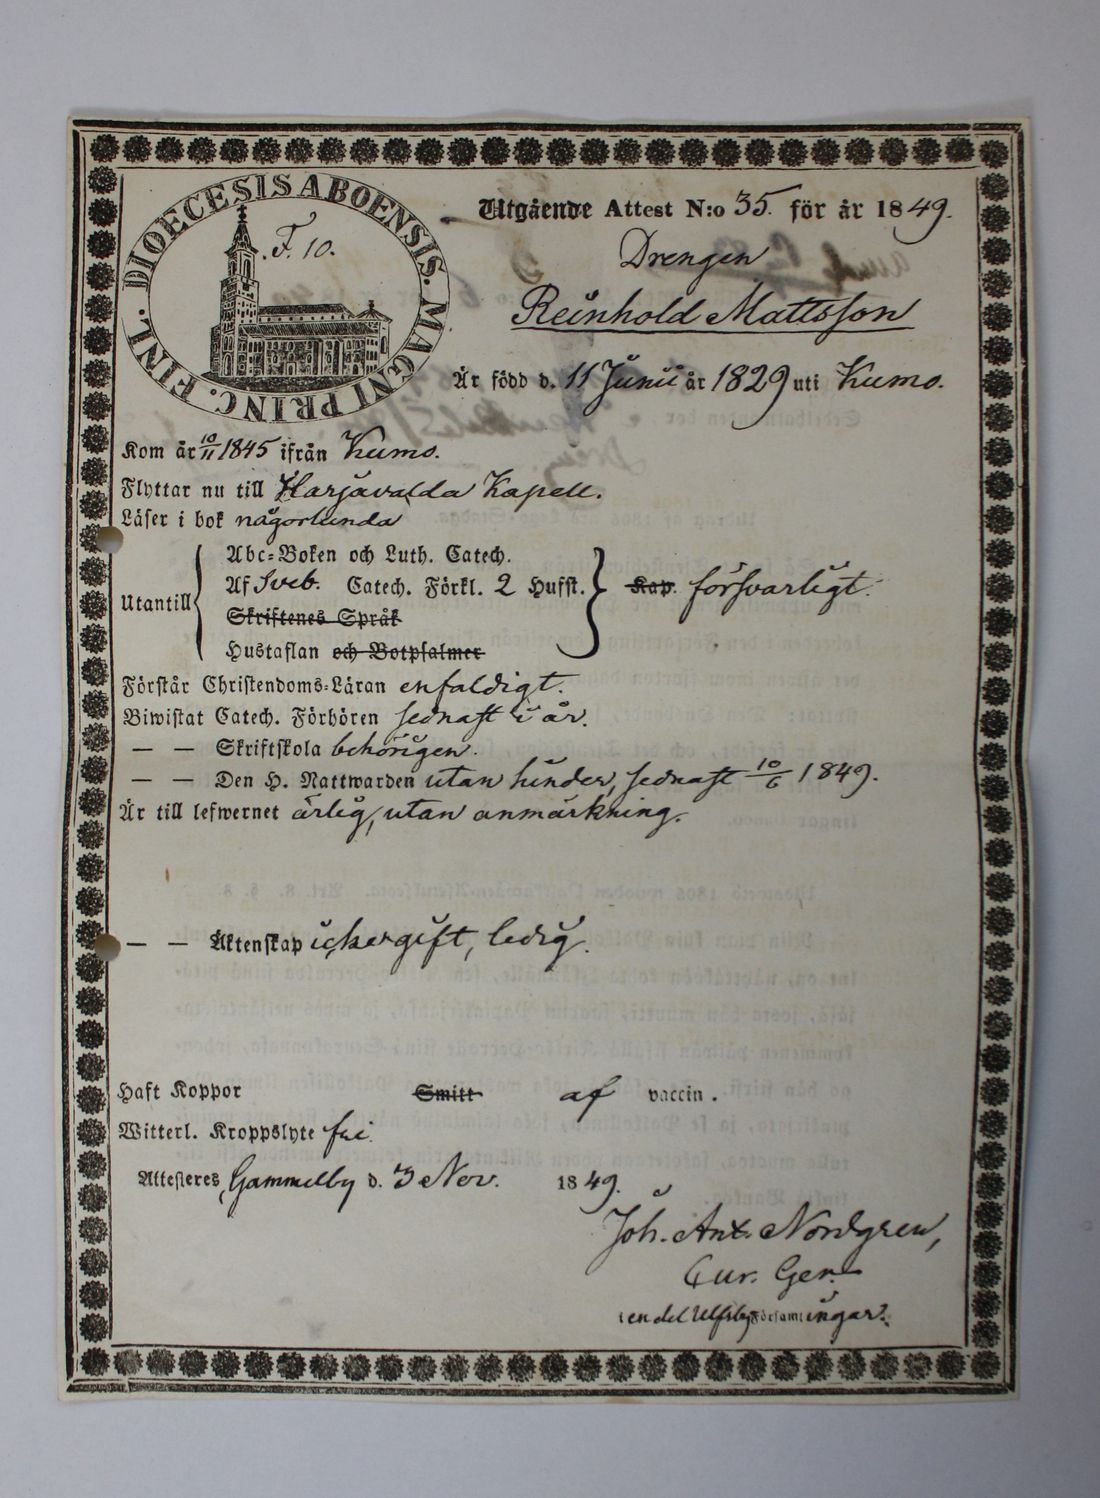 DIOECESIS ABOENSIS. MAGNI PRINC. FINL.
F. 10.
Utgående Attest N:o 35. för år 1849.
Drengen
Reinhold Mattsson
Är född d. 11 Junii år 1829 uti Kumo.
Kom år 10/11 1845 ifrån Kumo.
Flyttar nu till Harjavalda Kapell.
Läser i bok någorlunda
Utantill
Abc-Boken och Luth. Catech.
Af Sveb. Catech. Förkl. 2 Hufst. Kap. försvarligt.
Skriftenes Språk
Hustaflan och Botpsalmer
Förstår Christendoms-Läran enfaldigt.
Biwistat Catech. Förhören sednast i år.
— — Skriftskola behörigen.
— — Den H. Nattwarden utan hinder, sednast 10/6 1849.
Är till lefwernet ärlig, utan anmärkning.
— — Äktenskap icke gift, ledig.
Haft Koppor Smitt af vaccin.
Witterl. Kroppslyte fri
Attesteres, Gammelby d. 3 Nov. 1849.
Joh. Ant. Nordgren,
Cur. Ger.
i en del Ulfsby Församlingar.